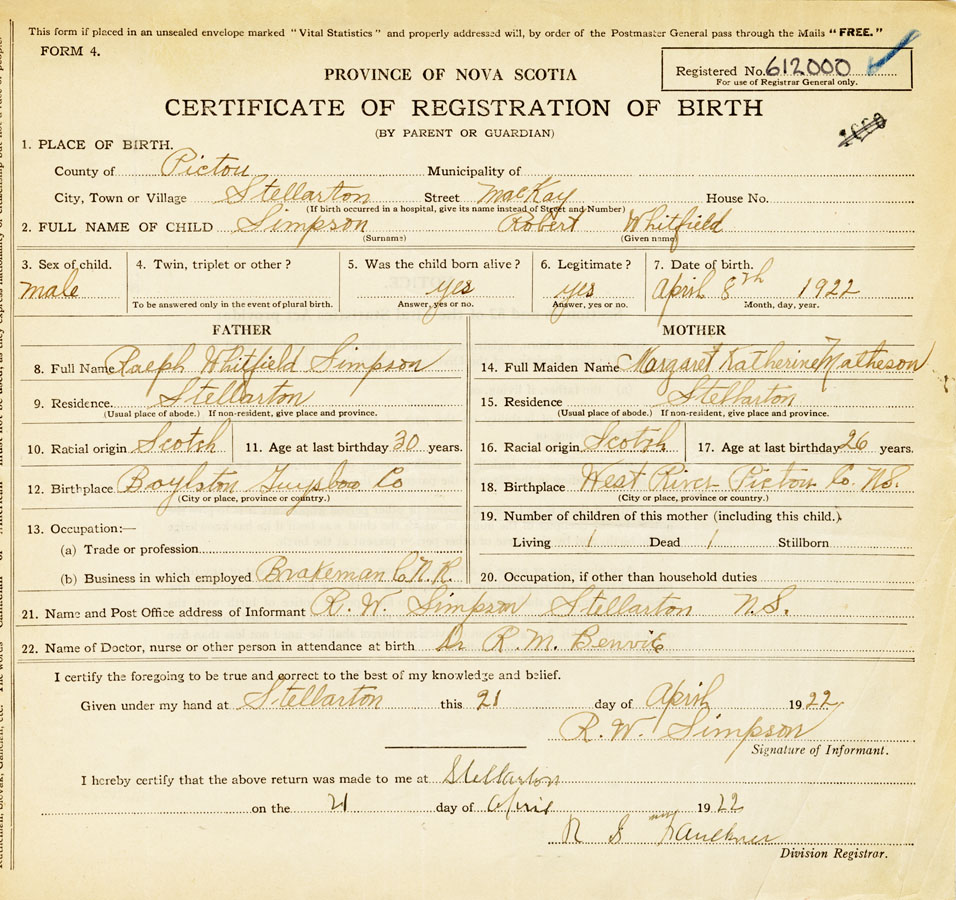 This form if placed in an unsealed envelope marked "Vital Statistics" and properly addressed will, by order of the Postmaster General pass through the Mails "FREE."
FORM 4.
Registered No. 612000
For use of Registrar General only.
PROVINCE OF NOVA SCOTIA
CERTIFICATE OF REGISTRATION OF BIRTH
(BY PARENT OR GUARDIAN)
1. PLACE OF BIRTH.
County of Pictou Municipality of
City, Town or Village Stellarton Street MacKay House No.
(If birth occurred in a hospital, give its name instead of Street and Number)
2. FULL NAME OF CHILD Simpson Robert Whitfield
(Surname) (Given name)
3. Sex of child. 4. Twin, triplet or other? 5. Was the child born alive? 6. Legitimate? 7. Date of birth.
male yes yes April 8th 1922
To be answered only in the event of plural birth. Answer, yes or no. Answer, yes or no. Month, day, year.
FATHER MOTHER
8. Full Name Ralph Whitfield Simpson 14. Full Maiden Name Margaret Katherine Matheson
9. Residence. Stellarton 15. Residence Stellarton
(Usual place of abode.) If non-resident, give place and province. (Usual place of abode.) If non-resident, give place and province.
10. Racial origin Scotch 11. Age at last birthday 30 years. 16. Racial origin Scotch 17. Age at last birthday 26 years.
12. Birthplace Boylston Guysboro Co 18. Birthplace West River Pictou Co. N.S.
(City or place, province or country.) (City or place, province or country.)
13. Occupation:— 19. Number of children of this mother (including this child.).
(a) Trade or profession Living 1 Dead 1 Stillborn
(b) Business in which employed Brakeman C.N.R. 20. Occupation, if other than household duties
21. Name and Post Office address of Informant R. W. Simpson Stellarton N.S.
22. Name of Doctor, nurse or other person in attendance at birth Dr R. M. Benvie
I certify the foregoing to be true and correct to the best of my knowledge and belief.
Given under my hand at Stellarton this 21 day of April 1922
R. W. Simpson
Signature of Informant.
I hereby certify that the above return was made to me at Stellarton
on the 21 day of April 1922
Faulkner
Division Registrar.